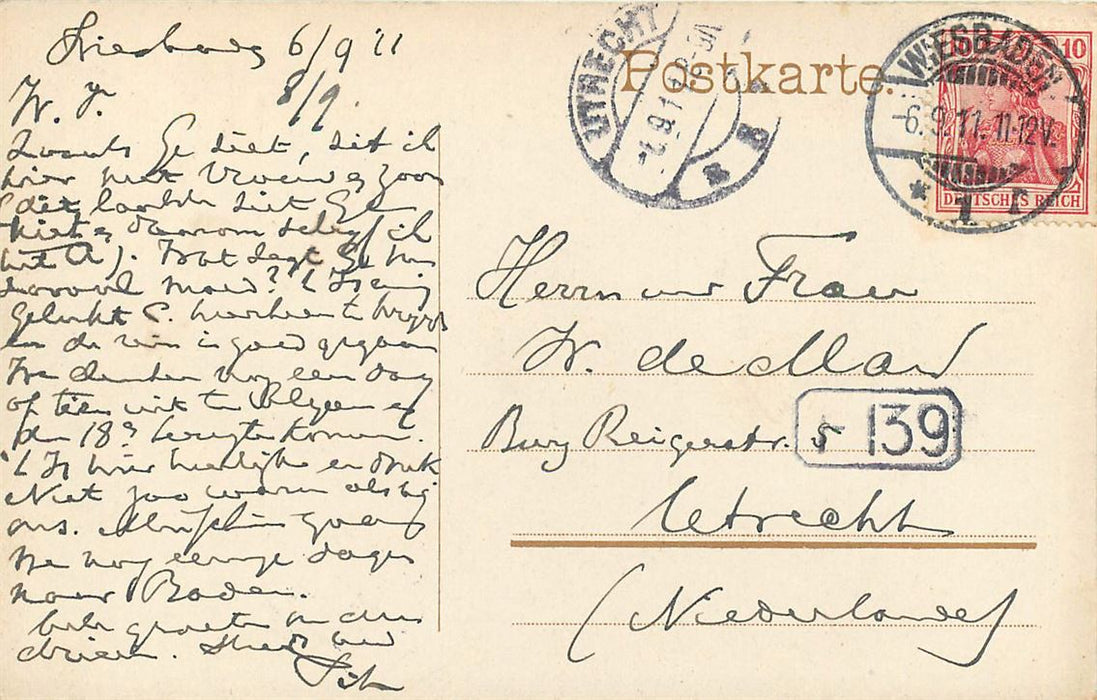 Wiesbaden 6/9 '11
8/9.
W. 
Zooals Ge ziet, zit ik
hier met Vrouw & Zoon
(dit laatste ziet Ge
niet & daarom schryf ik
het). Wat zegt Ge
gelukt hierheen te
en de reis is goed gegaan
We denken nog een dag
of tien uit te blyven &
den 18n terug te komen.
't Is hier heerlijk en ook
Niet zoo warm als by
ons. Misschien gaan
we nog eenige dagen
naar Baden.
groeten van ons
drieën.
Postkarte.
UTRECHT
8
WIESBADEN
-6.9.11. 11-12V.
* 1
10
DEUTSCHES REICH
Herrn und Frau
W. de Man
Burg Reigerstr. 5
139
Utrecht
(Niederlande)